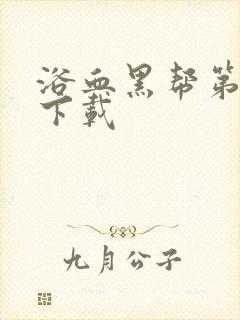 浴血黑帮第
下载
九月公子